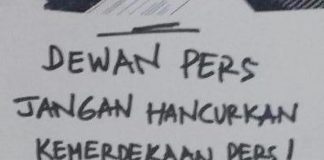 DEWAN PERS
JANGAN HANCURKAN
KEMERDEKAAN PERS!